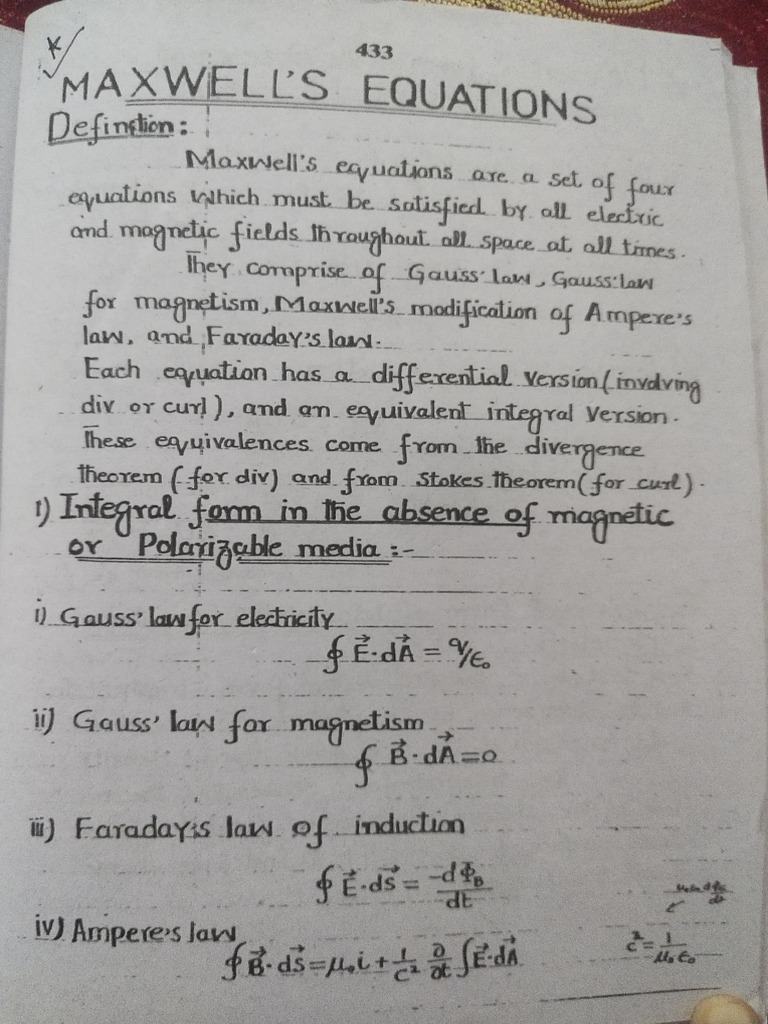 433
MAXWELL'S EQUATIONS
Definition:
Maxwell's equations are a set of four
equations which must be satisfied by all electric
and magnetic fields throughout all space at all times.
They comprise of Gauss' law, Gauss' law
for magnetism, Maxwell's modification of Ampere's
law, and Faraday's law.
Each equation has a differential version (involving
div or curl), and an equivalent integral version.
These equivalences come from the divergence
theorem (for div) and from Stokes theorem (for curl).
1) Integral form in the absence of magnetic
or Polarizable media :-
i) Gauss' law for electricity
∮ E⃗·dA⃗ = q/ε₀
ii) Gauss' law for magnetism
∮ B⃗·dA⃗ = 0
iii) Faraday's law of induction
∮ E⃗·ds⃗ = -dΦ_B/dt
iv) Ampere's law
∮ B⃗·ds⃗ = μ₀i + 1/c² ∂/∂t ∫E⃗·dA⃗
c² = 1/μ₀ε₀